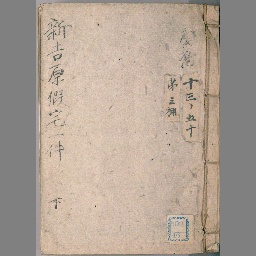 十三ノ五十
第三冊
新吉原仮宅一件
下